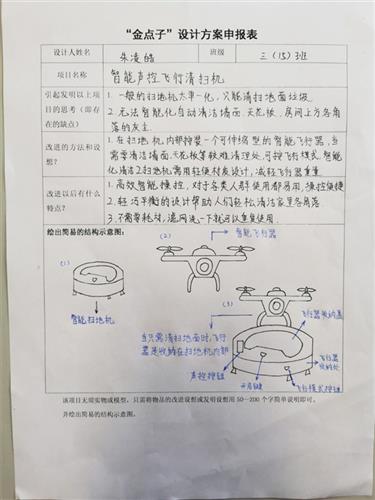 “金点子”设计方案申报表
设计人姓名 朱凌皓 班级 三（15）班
项目名称 智能声控飞行清扫机
引起发明以上项目的思考（即存在的缺点）
1. 一般的扫地机大率一化，只能清扫地面垃圾
2. 无法智能化自动清洁墙面、天花板、房间上方各角落的灰尘.
改进的方法和设想？
1. 在扫地机内部持装一个可伸缩型的智能飞行器，当需要清洁墙面、天花板等较难清理处，可持飞行模式，智能化清洁
2. 扫地机需用轻便材质设计，减轻飞行器重量
改进以后有什么特点？
1. 高效智能操控，对于各类人群使用都易用，操控便捷
2. 轻巧平衡的设计帮助人们轻松清洁家里各角落
3. 不需耗材，滤网洗一下就可以重复使用.
绘出简易的结构示意图：
(1)
智能扫地机
(2)
智能飞行器
(3)
飞行器收纳盖
当只需清扫地面时，飞行器是收纳在扫地机内部
声控按钮
开启键
飞行模式按钮
飞行器收纳处
该项目无须实物或模型，只需将物品的改进设想或发明设想用50—200个字简单说明即可，
并绘出简易的结构示意图。